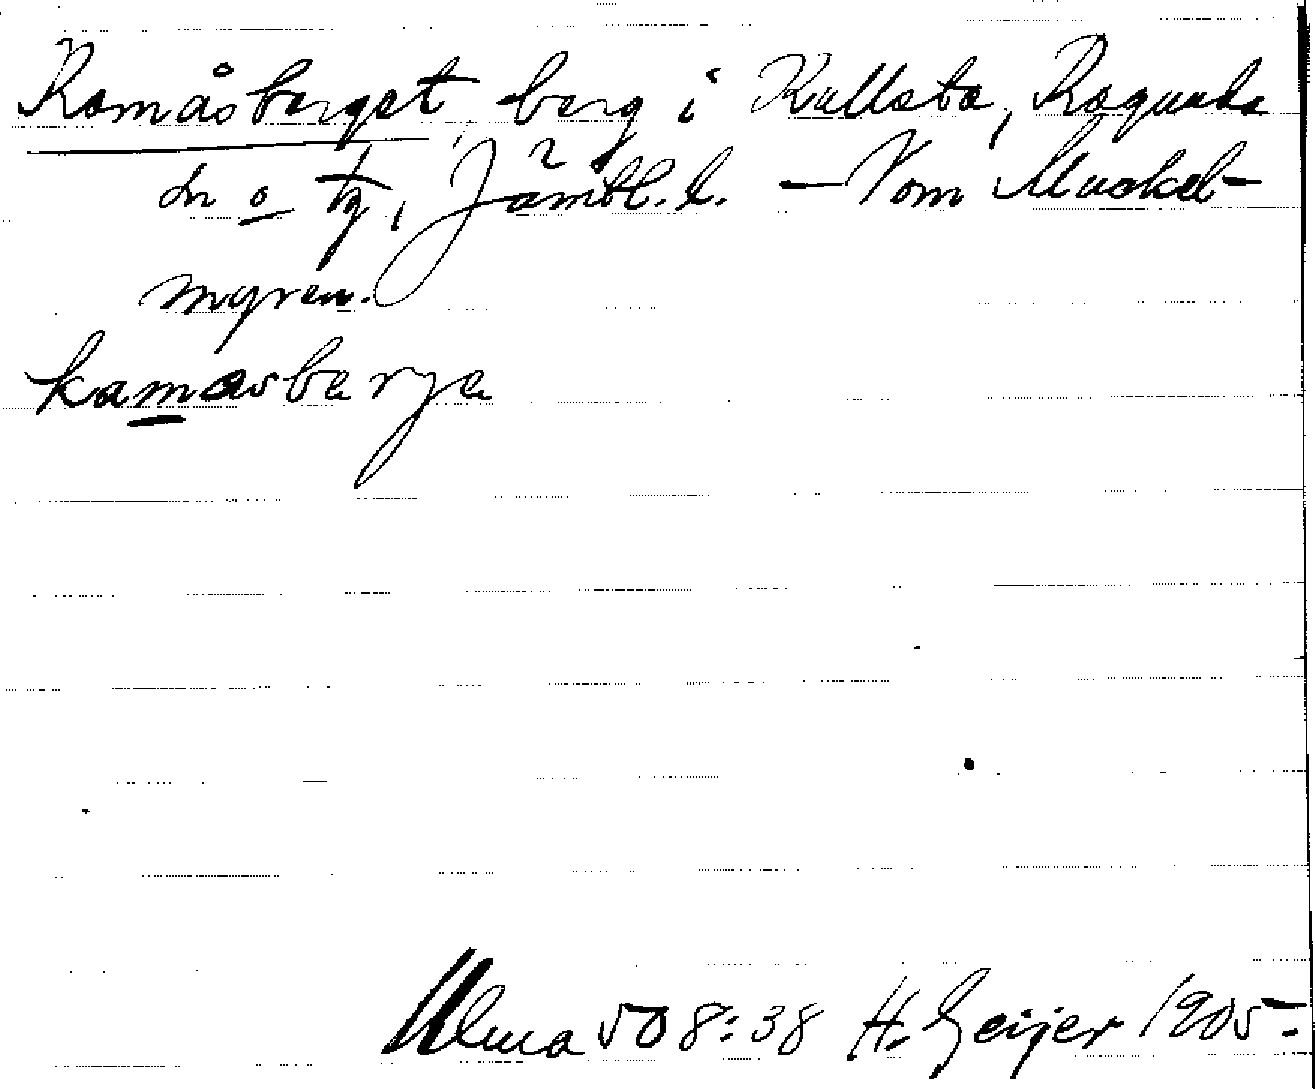 Kamåsberget, berg i Kullsta, Ragunda
sn o tg, Jämtl. l. — Vom Muckel-
myren.
kamasbærje
Ulma 508:38 H. Geijer 1905.